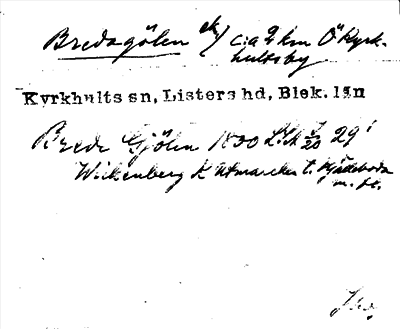 Bredagölen ek/ c:a 2 km Ö Kyrk-
hultsby
Kyrkhults sn, Listers hd, Blek. län
Brede Gjölen 1830 29
Wickenberg K Utmarcker t.
m. fl.